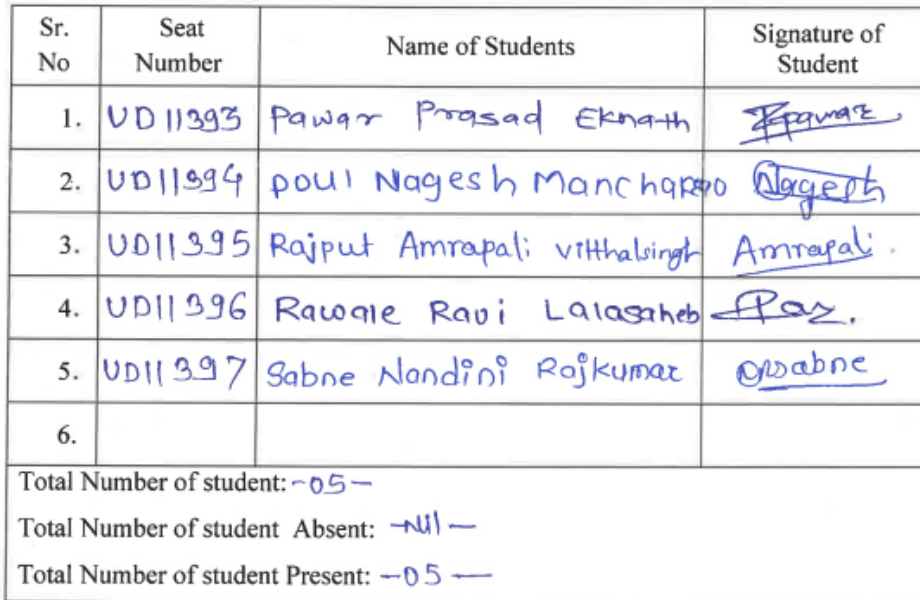 Sr. No Seat Number Name of Students Signature of Student
1. UD11393 Pawar Prasad Eknath
2. UD11394 Poul Nagesh Mancharao Nagesh
3. UD11395 Rajput Amrapali vitthalsingh Amrapali
4. UD11396 Rawale Ravi Lalasaheb
5. UD11397 Sabne Nandini Rajkumar
6.
Total Number of student: -05-
Total Number of student Absent: -Nil-
Total Number of student Present: -05-